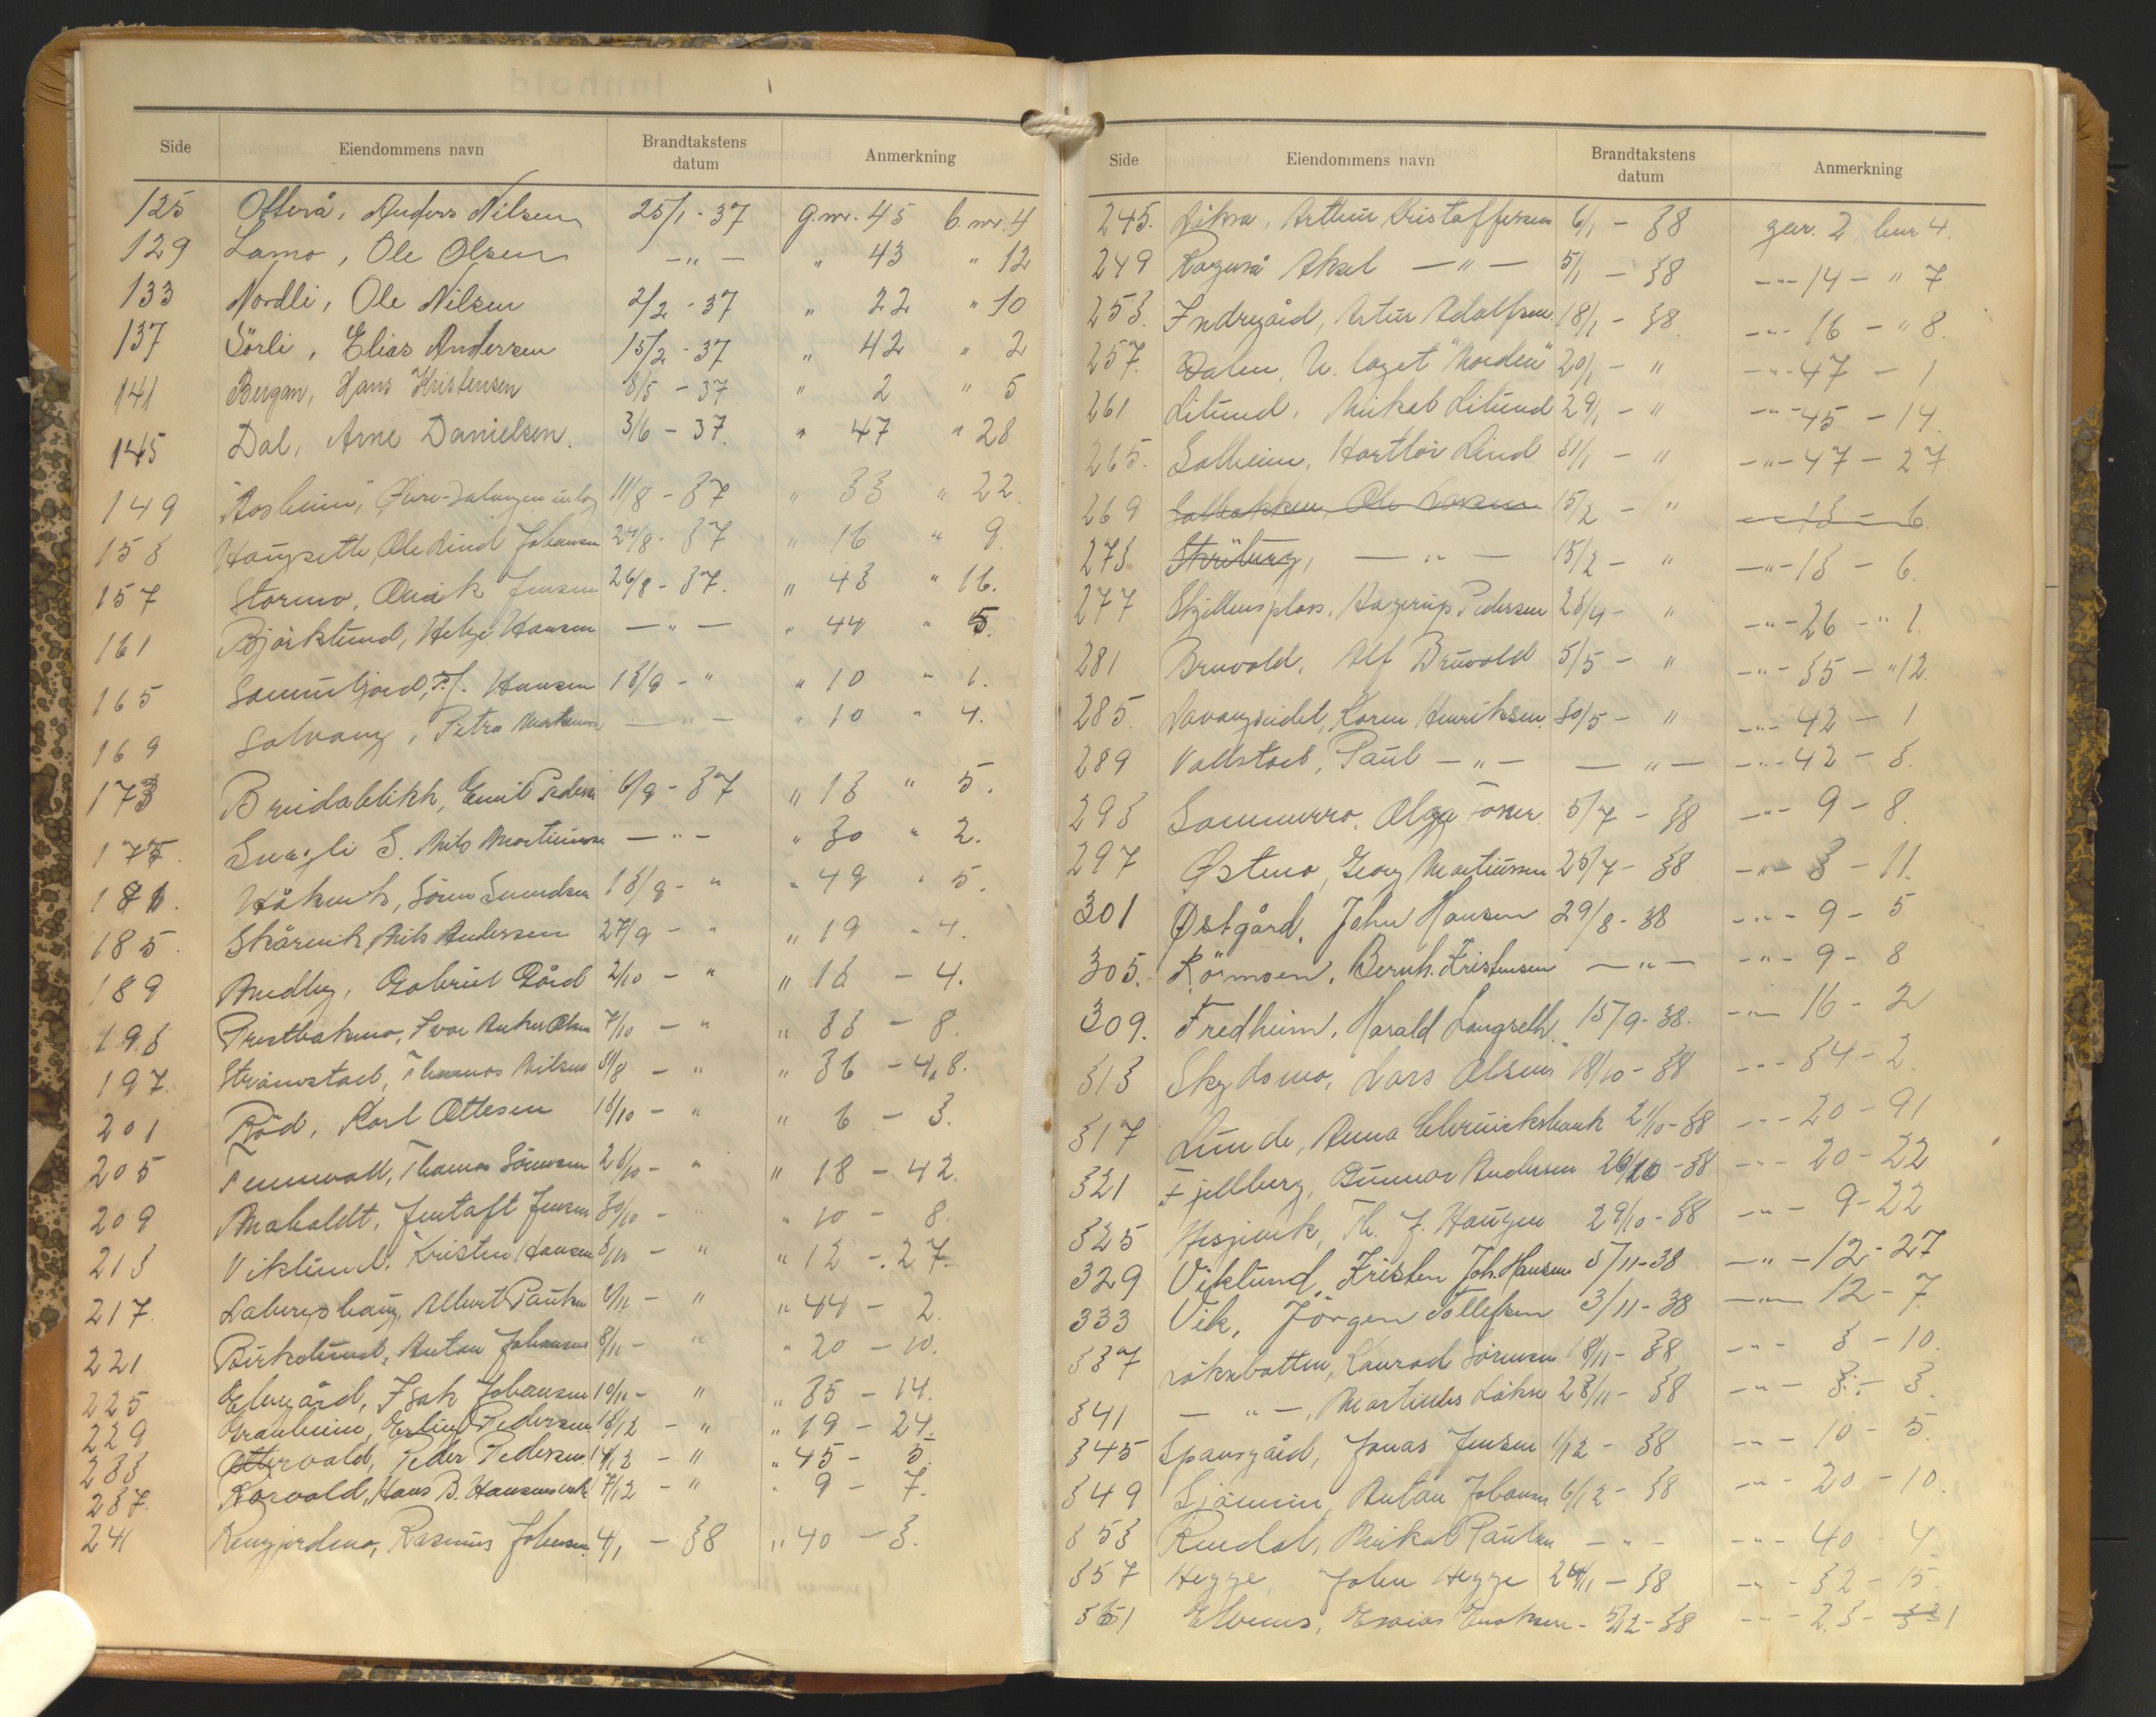 Side Eiendommens navn Brandtakstens datum Anmerkning
125 Otterå, Anders Nilsen 25/1 - 37 g.nr. 45 b.nr. 4
129 Lamo, Ole Olsen — " — " 43 " 12
133 Nordli, Ole Nilsen 2/2 - 37 " 22 " 10
137 Sörli, Elias Andersen 15/2 - 37 " 42 " 2
141 Bergan, Hans Kristensen 8/5 - 37 " 2 " 5
145 Dal, Arne Danielsen. 3/6 - 37. " 47 " 28
149 "Aasheim", Øvre-Salangen 11/8 - 37 " 33 " 22.
153 Haugseth, Ole Lind Johansen 24/8 - 37 " 16 " 9.
157 Stormo, Jensen 26/8 - 37. " 43 " 16.
161 Björklund, Helge Hansen — " — " 44 " 5.
165 Hansen 13/9 - " " 10 " 1.
169 Solvang, Petra — " — " 10 " 4.
173 Breidablikk, Emil Peders 6/9 - 37 " 13 " 5.
177. S. Nils — " — " 30 " 2.
181. Håkvik, Sören 13/9 - " " 49 " 5.
185. Skårvik, Nils Andersen 27/9 - " " 19 " 4.
189 Medby, Gabriel Gård 2/10 - " " 13 - 4.
193 Prestbakmo, Ivar 7/10 - " " 33 - 8.
197. Strömstad, Thomas Nilsen 31/8 - " " 36 - 4,8.
201 Röd, Karl Ottesen 13/10 - " " 6 - 3.
205 Tennevoll, Thomas Sörensen 23/10 - " " 18 - 42.
209 Jentoft Jensen 30/10 - " " 10 - 8.
213 Viklund, Kristen Hansen - " " 12 - 27.
217. Labergshaug, Albert Paulsen - " " 44 - 2.
221 Birkelund, Anton Johansen 8/11 - " " 20 - 10.
225 Elvegård, Isak Johansen 10/11 - " " 35 - 14.
229 Granheim, Erling Pedersen 13/12 - " " 19 - 24.
233 Ottervold, Peder Pedersen 14/12 - " " 45 - 5.
237. Korvold, Hans B. 17/12 - " " 9 - 7.
241 Rasmus Johansen. 4/1 - 38 " 40 - 3.
Side Eiendommens navn Brandtakstens datum Anmerkning
245. Löksa, Arthur Kristoffersen 6/1 - 38 gnr. 2 bnr 4.
249 Aksel — " — 5/1 - 38 — " — 14 - " 7
253. Indregård, Artur Adolfsen 18/1 - 38 — " — 16 - " 8.
257. Dalen, U. laget "Norden" 20/1 - " — " — 47 - 1
261 Lilund, Mikal Lilund 29/1 - " — " — 45 - 14.
265. Solheim, Hartvir Lind 31/1 - " — " — 47 - 27.
269 Solbakken, Ole Larsen 15/2 - " — " — 13 - 6.
273. — " — 15/2 - " — " — 13 - 6.
277 Skjellensplass, Hagerup Pedersen 23/4 - " — " — 26 - " 1.
281 Bruvold, Alf Bruvold 5/5 - " — " — 35 - " 12.
285. Lavangseidet, Karen Henriksen 30/5 - " — " — 42 - 1
289 Vollstad, Paul — " — — " — — " — 42 - 3.
293 Sommerro, Olga 5/7 - 38 — " — 9 - 8.
297 Østmo, Georg Martinussen 25/7 - 38 — " — 3 - 11.
301 Østgård, John Hansen 29/8 - 38 — " — 9 - 5
305. Rörmoen, Bernh. Kristensen — " — — " — 9 - 8
309. Fredheim, Harald Langseth. 15/9 - 38. — " — 16 - 2
313 Skydsmo, Lars Olsen 18/10 - 38 — " — 34 - 2.
317 Lunde, Anna 21/10 - 38 — " — 20 - 91
321 Fjellberg, Gunnar Andersen 26/10 - 38 — " — 20 - 22
325 Hesjevik, Th. J. Haugen 29/10 - 38 — " — 9 - 22
329 Viklund, Kristen Joh. Hansen 5/11 - 38 — " — 12 - 27
333 Vik, Jörgen Tollefsen 3/11 - 38 — " — 12 - 7.
337 Löksebotten, Konrad Sörensen 18/11 - 38 — " — 3 - 10.
341 — " —, Martinus Löksa 23/11 - 38 — " — 3 - 3.
345 Spansgård, Jonas Jensen 1/12 - 38 — " — 10 - 5.
349 Anton Johansen 6/12 - 38 — " — 20 - 10.
353 Rendal, Mikal Paulsen — " — — " — 40 - 4
357 Hegge, John Hegge 24/1 - 38 — " — 32 - 15.
361 Elvenes, Esaias Enoksen - 5/12 - 38 — " — 23 - 1